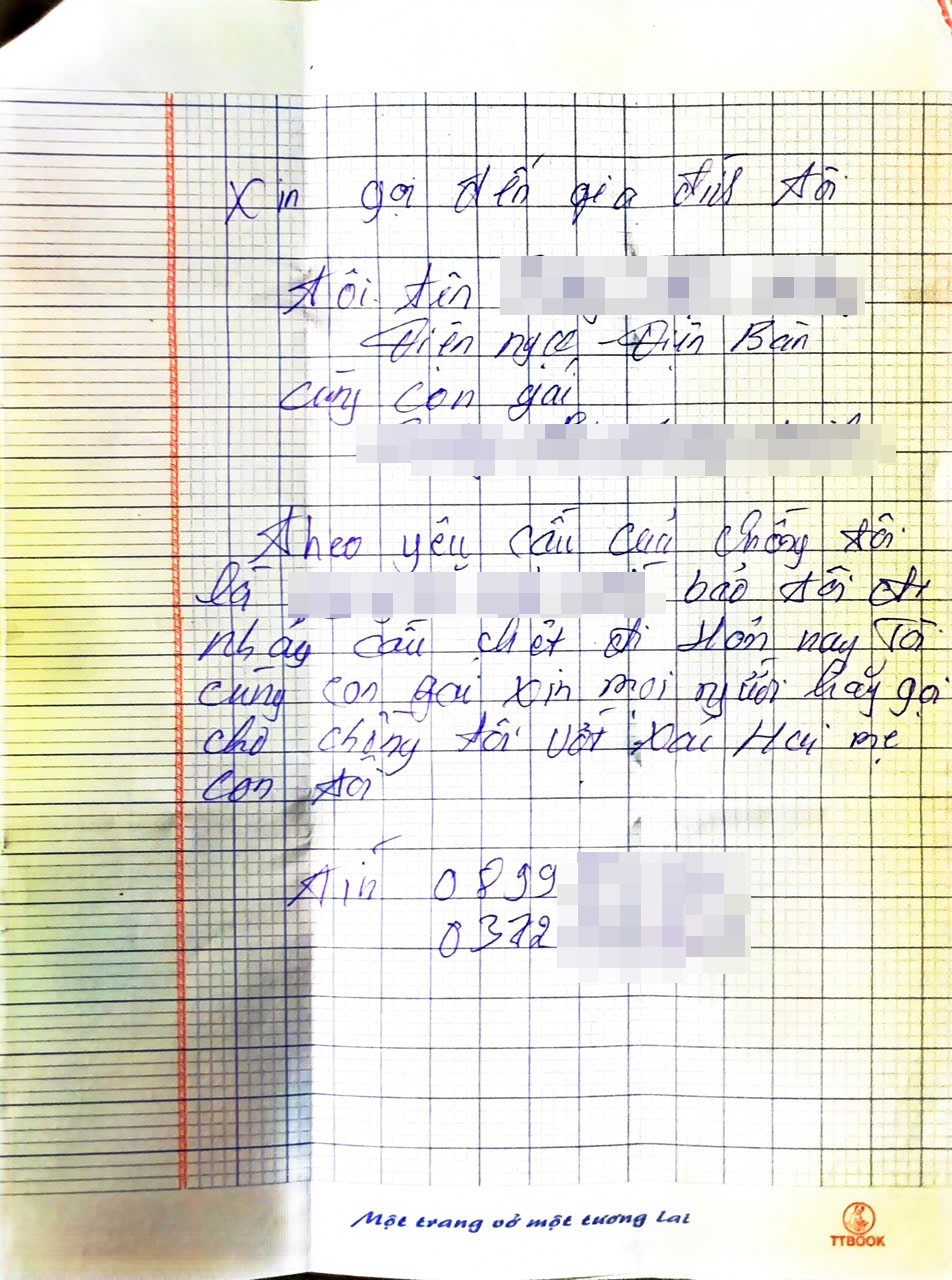 Xin gọi đến gia đình tôi
tôi tên
Điện ngọc - Điện Bàn
cùng con gái
Theo yêu cầu của chồng tôi
là bảo tôi đi
nhảy cầu chết đi Hôm nay Tôi
cùng con gai xin mọi người hãy gọi
cho chồng tôi vớt xác Hai mẹ
con tôi
0899
0372
Một trang vở một tương lai
TTBOOK